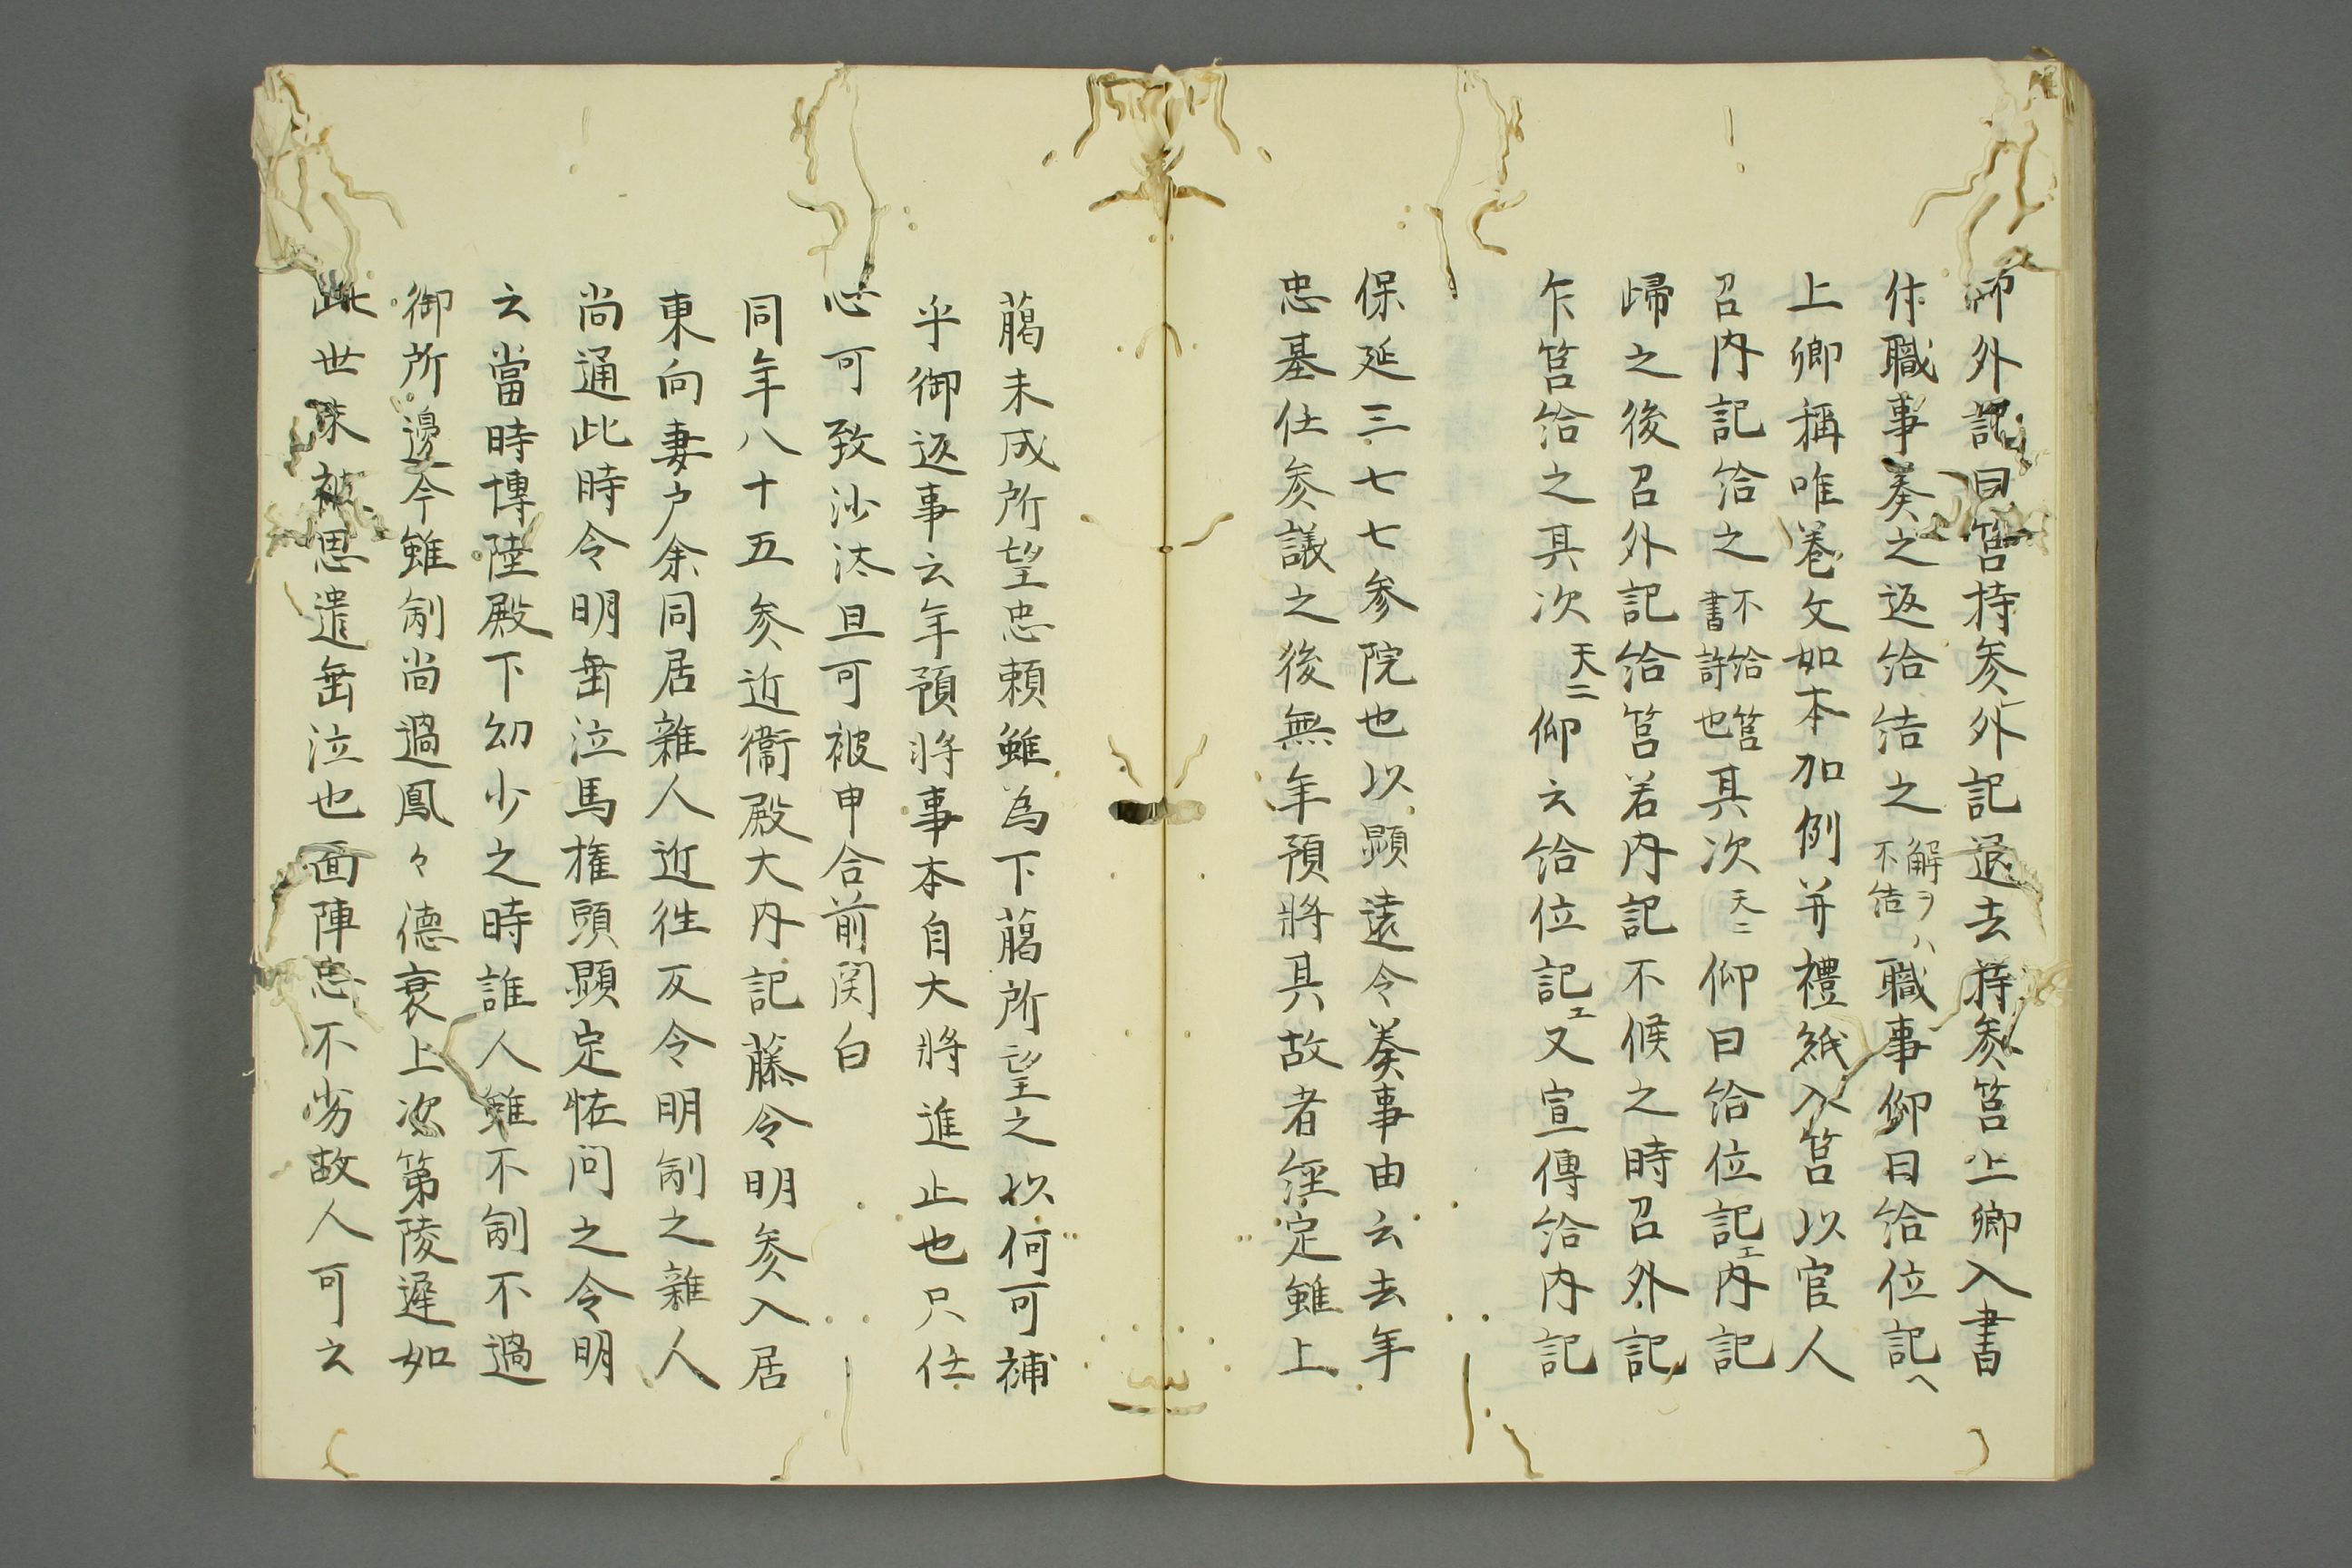 仰外記曰筥持参外記退去持参筥上卿入書
付職事奏之返給結之解ヲハ不結職事仰曰給位記ヘ
上卿稱唯巻文如本加例并禮紙入筥以官人
召内記給之不給筥書許也其次天ニ仰曰給位記エ内記
歸之後召外記給筥若内記不候之時召外記
乍筥給之其次天ニ仰云給位記エ又宣傳給内記
保延三七七参院也以顕遠令奏事由云去年
忠基仕参議之後無年預将其故者経定雖上
﨟未成所望忠頼雖為下﨟所望之以何可補
乎御返事云年預将事本自大将進止也只任
心可致沙汰且可被申合前関白
同年八十五参近衛殿大内記藤令明参入居
東向妻戸余同居雑人近往反令明制之雑人
尚通此時令明垂泣馬権頭顕定恠問之令明
云當時博陸殿下幼少之時誰人雖不制不過
御所邊今雖制尚過鳳々德衰上次第陵遅如
此世未被思遣垂泣也面陣忠不劣故人可云